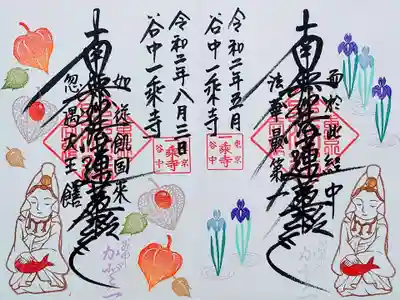 而於此経中
南無妙法蓮華経
法華最第一
令和二年五月
谷中一乗寺
東京
一乗寺
谷中
如従飢国来
南無妙法蓮華経
忽遇大王饍
令和二年八月二日
谷中一乗寺
東京
一乗寺
谷中